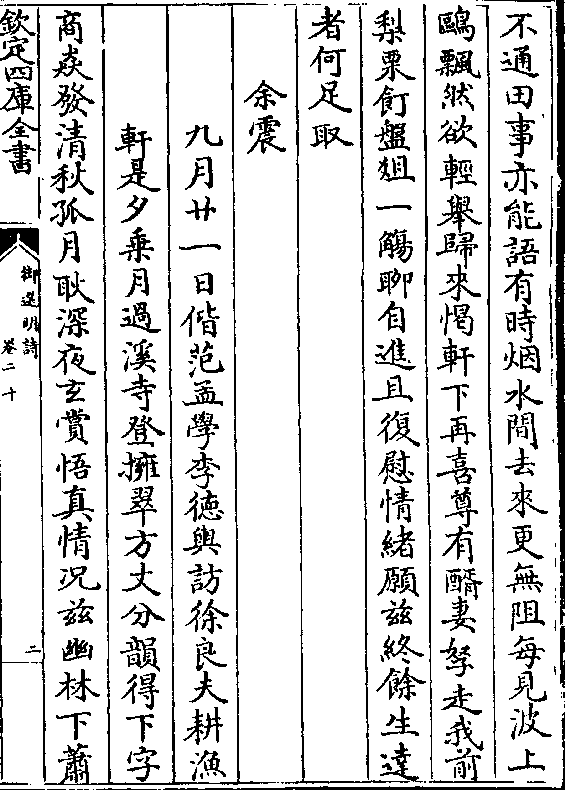 不通田事亦能語有時烟水間去來更無阻每見波上
鷗飄然欲輕舉歸來愒軒下再喜尊有醑妻孥走我前
梨栗飣盤俎一觴聊自進且復慰情緒願兹終餘生達
者何足取
余震
九月廿一日偕范孟學李德輿訪徐良夫耕漁
軒是夕乗月過溪寺登擁翠方丈分韻得下字
商猋發清秋孤月耿深夜玄賞悟真情况兹幽林下蕭
欽定四庫全書
御選明詩
卷二十
二